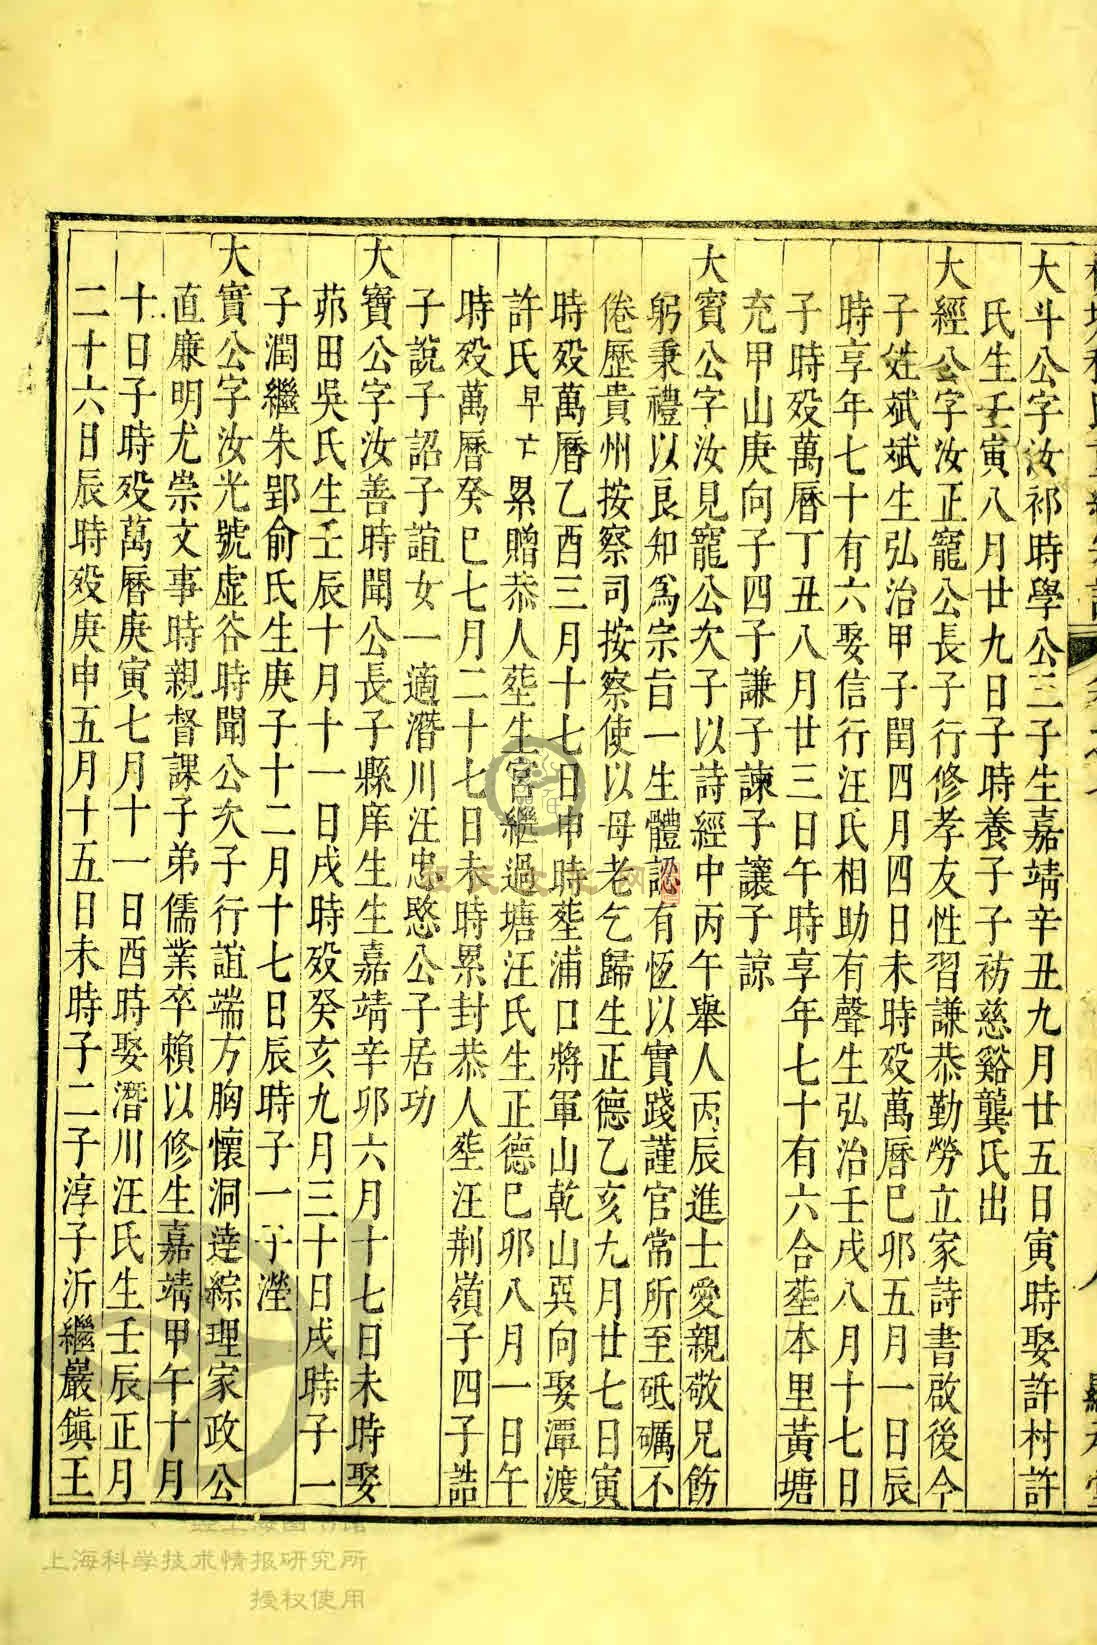 大斗公字汝祁時學公三子生嘉靖辛丑九月廿五日寅時娶許村許
氏生壬寅八月廿九日子時養子子祊慈谿龔氏出
大經公字汝正寵公長子行修孝友性習謙恭勤勞立家詩書啟後今
子姓斌斌生弘治甲子閏四月四日未時歿萬曆巳卯五月一日辰
時享年七十有六娶信行汪氏相助有聲生弘治壬戌八月十七日
子時歿萬曆丁丑八月廿三日午時享年七十有六合塟本里黃塘
充甲山庚向子四子謙子諫子讓子諒
大賓公字汝見寵公次子以詩經中丙午舉人丙辰進士愛親敬兄飭
躬秉禮以良知為宗旨一生體認有恆以實踐謹官常所至砥礪不
倦歷貴州按察司按察使以母老乞歸生正德乙亥九月廿七日寅
時歿萬曆乙酉三月十七日申時塟浦口將軍山乾山巽向娶潭渡
許氏早亡累贈恭人塟生宮繼過塘汪氏生正德巳卯八月一日午
時歿萬曆癸巳七月二十七日未時累封恭人塟汪荆嶺子四子誥
子說子詔子誼女一適潛川汪忠愍公子居功
大寶公字汝善時聞公長子縣庠生生嘉靖辛卯六月十七日未時娶
茆田吳氏生壬辰十月十一日戌時歿癸亥九月三十日戌時子一
子潤繼朱郢俞氏生庚子十二月十七日辰時子一子瀅
大實公字汝光號虛谷時聞公次子行誼端方胸懷洞達綜理家政公
直廉明尤崇文事時親督課子弟儒業卒賴以修生嘉靖甲午十月
十日子時歿萬曆庚寅七月十一日酉時娶潛川汪氏生壬辰正月
二十六日辰時歿庚申五月十五日未時子二子淳子沂繼巖鎮王
上海科学技术情报研究所
授权使用